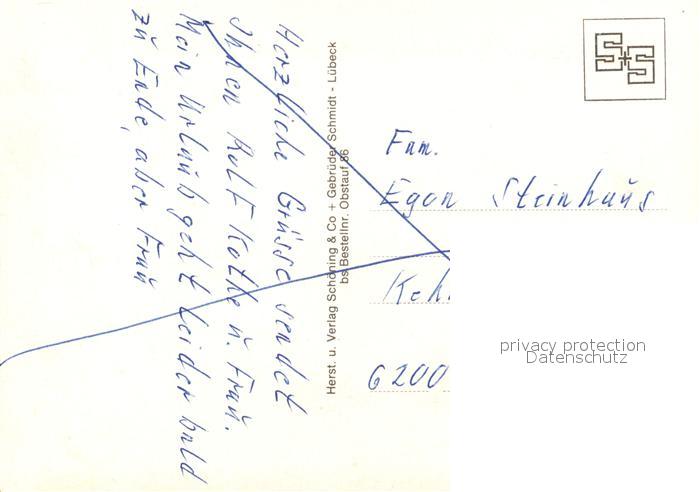 Herzliche Grüsse sendet
Ihnen Rolf Kothe u. Frau.
Mein Urlaub geht leider bald
zu Ende, aber Frau
Herst. u. Verlag Schöning & Co + Gebrüder Schmidt - Lübeck
bs Bestellnr. Obstauf 86
S+S
Fam.
Egon Steinhaus
Keh
6200
privacy protection
Datenschutz